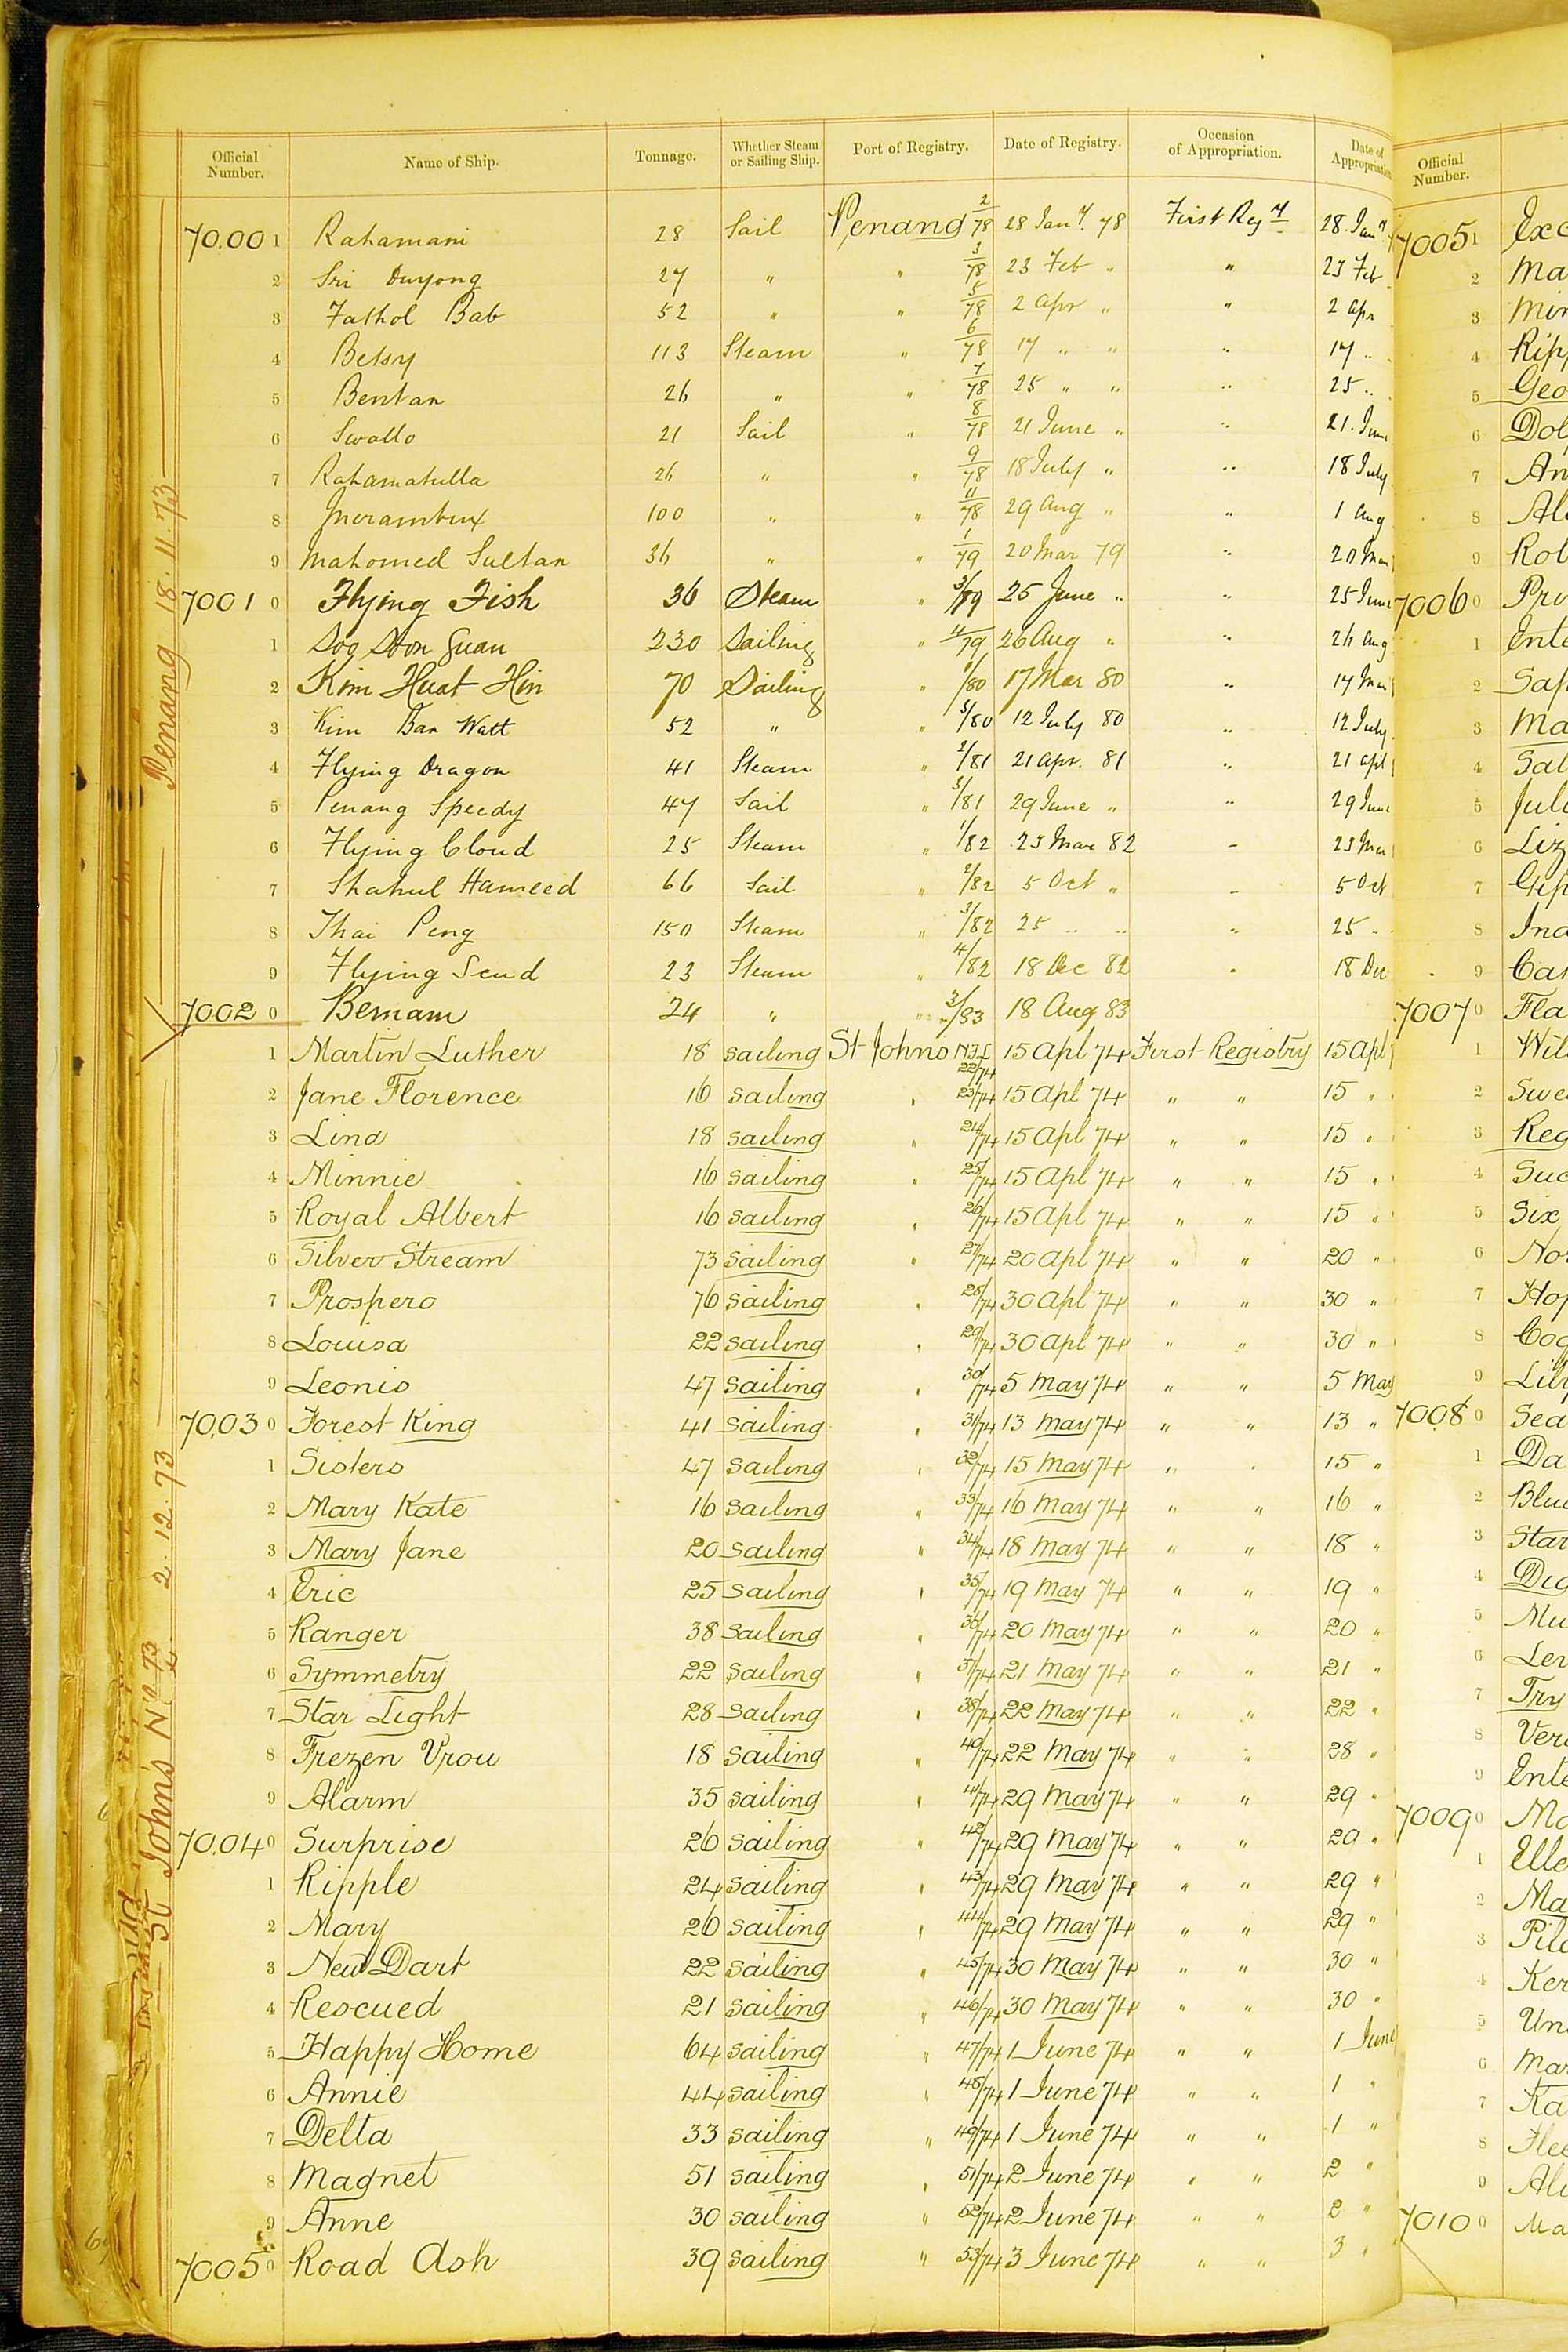 Official Number. Name of Ship. Tonnage. Whether Steam or Sailing Ship. Port of Registry. Date of Registry. Occasion of Appropriation. Date of Appropriation
70.001 Rahamani 28 Sail Penang 2/78 28 Jany. 78 First Regy 28 Jany
2 Sri Duyong 27 " " 3/78 23 Feb " " 23 Feb
3 Fathol Bab 52 " " 5/78 2 Apr " " 2 Apr
4 Betsy 113 Steam " 6/78 17 " " " 17 "
5 Bentan 26 " " 7/78 25 " " " 25 "
6 Swallo 21 Sail " 8/78 21 June " " 21 June
7 Rahamatulla 26 " " 9/78 18 July " " 18 July
8 100 " " 11/78 29 Aug " " 1 Aug
9 Mahomed Sultan 36 " " 1/79 20 Mar 79 " 20 Mar
7001 0 Flying Fish 36 Steam " 3/79 25 June " " 25 June
1 Soo Soon Guan 230 Sailing " 4/79 26 Aug " " 26 Aug
2 Kim Huat Hin 70 Sailing " 1/80 17 Mar 80 " 17 Mar
3 Kim Ban Watt 52 " " 5/80 12 July 80 " 12 July
4 Flying Dragon 41 Steam " 2/81 21 Apr. 81 " 21 Apl
5 Penang Speedy 47 Sail " 3/81 29 June " " 29 June
6 Flying Cloud 25 Steam " 1/82 23 Mar 82 " 23 Mar
7 Shahul Hameed 66 Sail " 2/82 5 Oct " " 5 Oct
8 Thai Peng 150 Steam " 3/82 25 " " " 25 "
9 Flying Scud 23 Steam " 4/82 18 Dec 82 " 18 Dec
7002 0 Bernam 24 " " 3/83 18 Aug 83
1 Martin Luther 18 sailing St Johns N.F.L 22/74 15 Apl 74 First Registry 15 Apl
2 Jane Florence 16 sailing " 23/74 15 Apl 74 " " 15 "
3 Lina 18 sailing " 24/74 15 Apl 74 " " 15 "
4 Minnie 16 sailing " 25/74 15 Apl 74 " " 15 "
5 Royal Albert 16 sailing " 26/74 15 Apl 74 " " 15 "
6 Silver Stream 73 sailing " 27/74 20 Apl 74 " " 20 "
7 Prospero 76 sailing " 28/74 30 Apl 74 " " 30 "
8 Louisa 22 sailing " 29/74 30 Apl 74 " " 30 "
9 Leonis 47 sailing " 30/74 5 May 74 " " 5 May
70.03 0 Forest King 41 sailing " 31/74 13 May 74 " " 13 "
1 Sisters 47 sailing " 32/74 15 May 74 " " 15 "
2 Mary Kate 16 sailing " 33/74 16 May 74 " " 16 "
3 Mary Jane 20 sailing " 34/74 18 May 74 " " 18 "
4 Eric 25 sailing " 35/74 19 May 74 " " 19 "
5 Ranger 38 sailing " 36/74 20 May 74 " " 20 "
6 Symmetry 22 sailing " 37/74 21 May 74 " " 21 "
7 Star Light 28 sailing " 38/74 22 May 74 " " 22 "
8 Frezen Vrou 18 sailing " 40/74 22 May 74 " " 28 "
9 Alarm 35 sailing " 41/74 29 May 74 " " 29 "
70.04 0 Surprise 26 sailing " 42/74 29 May 74 " " 29 "
1 Ripple 24 sailing " 43/74 29 May 74 " " 29 "
2 Mary 26 sailing " 44/74 29 May 74 " " 29 "
3 New Dart 22 sailing " 45/74 30 May 74 " " 30 "
4 Rescued 21 sailing " 46/74 30 May 74 " " 30 "
5 Happy Home 64 sailing " 47/74 1 June 74 " " 1 June
6 Annie 44 sailing " 48/74 1 June 74 " " 1 "
7 Delta 33 sailing " 49/74 1 June 74 " " 1 "
8 Magnet 51 sailing " 51/74 2 June 74 " " 2 "
9 Anne 30 sailing " 52/74 2 June 74 " " 2 "
7005 0 Road Ash 39 sailing " 53/74 3 June 74 " " 3 "
Penang 18.11.73
St Johns Nfld 2.12.73
Official Number.
7005 1
2 Ma
3
4 Ripp
5 Geo
6 Dol
7 An
8 Al
9 Rob
7006 0 Pri
1 Ente
2 Saf
3 Ma
4 Sal
5 Juli
6 Liz
7 Gip
8 Ind
9
7007 0 Fla
1 Wil
2 Swe
3 Reg
4 Suc
5 Six
6 No
7 Hop
8
9 Lil
7008 0 Sea
1 Da
2 Blue
3 Star
4 Dia
5
6
7 Try
8 Ver
9 Ente
7009 0
1 Elle
2 Ma
3 Pil
4
5 Un
6 Mar
7 Ka
8 Flee
9 Ali
7010 0 Ma